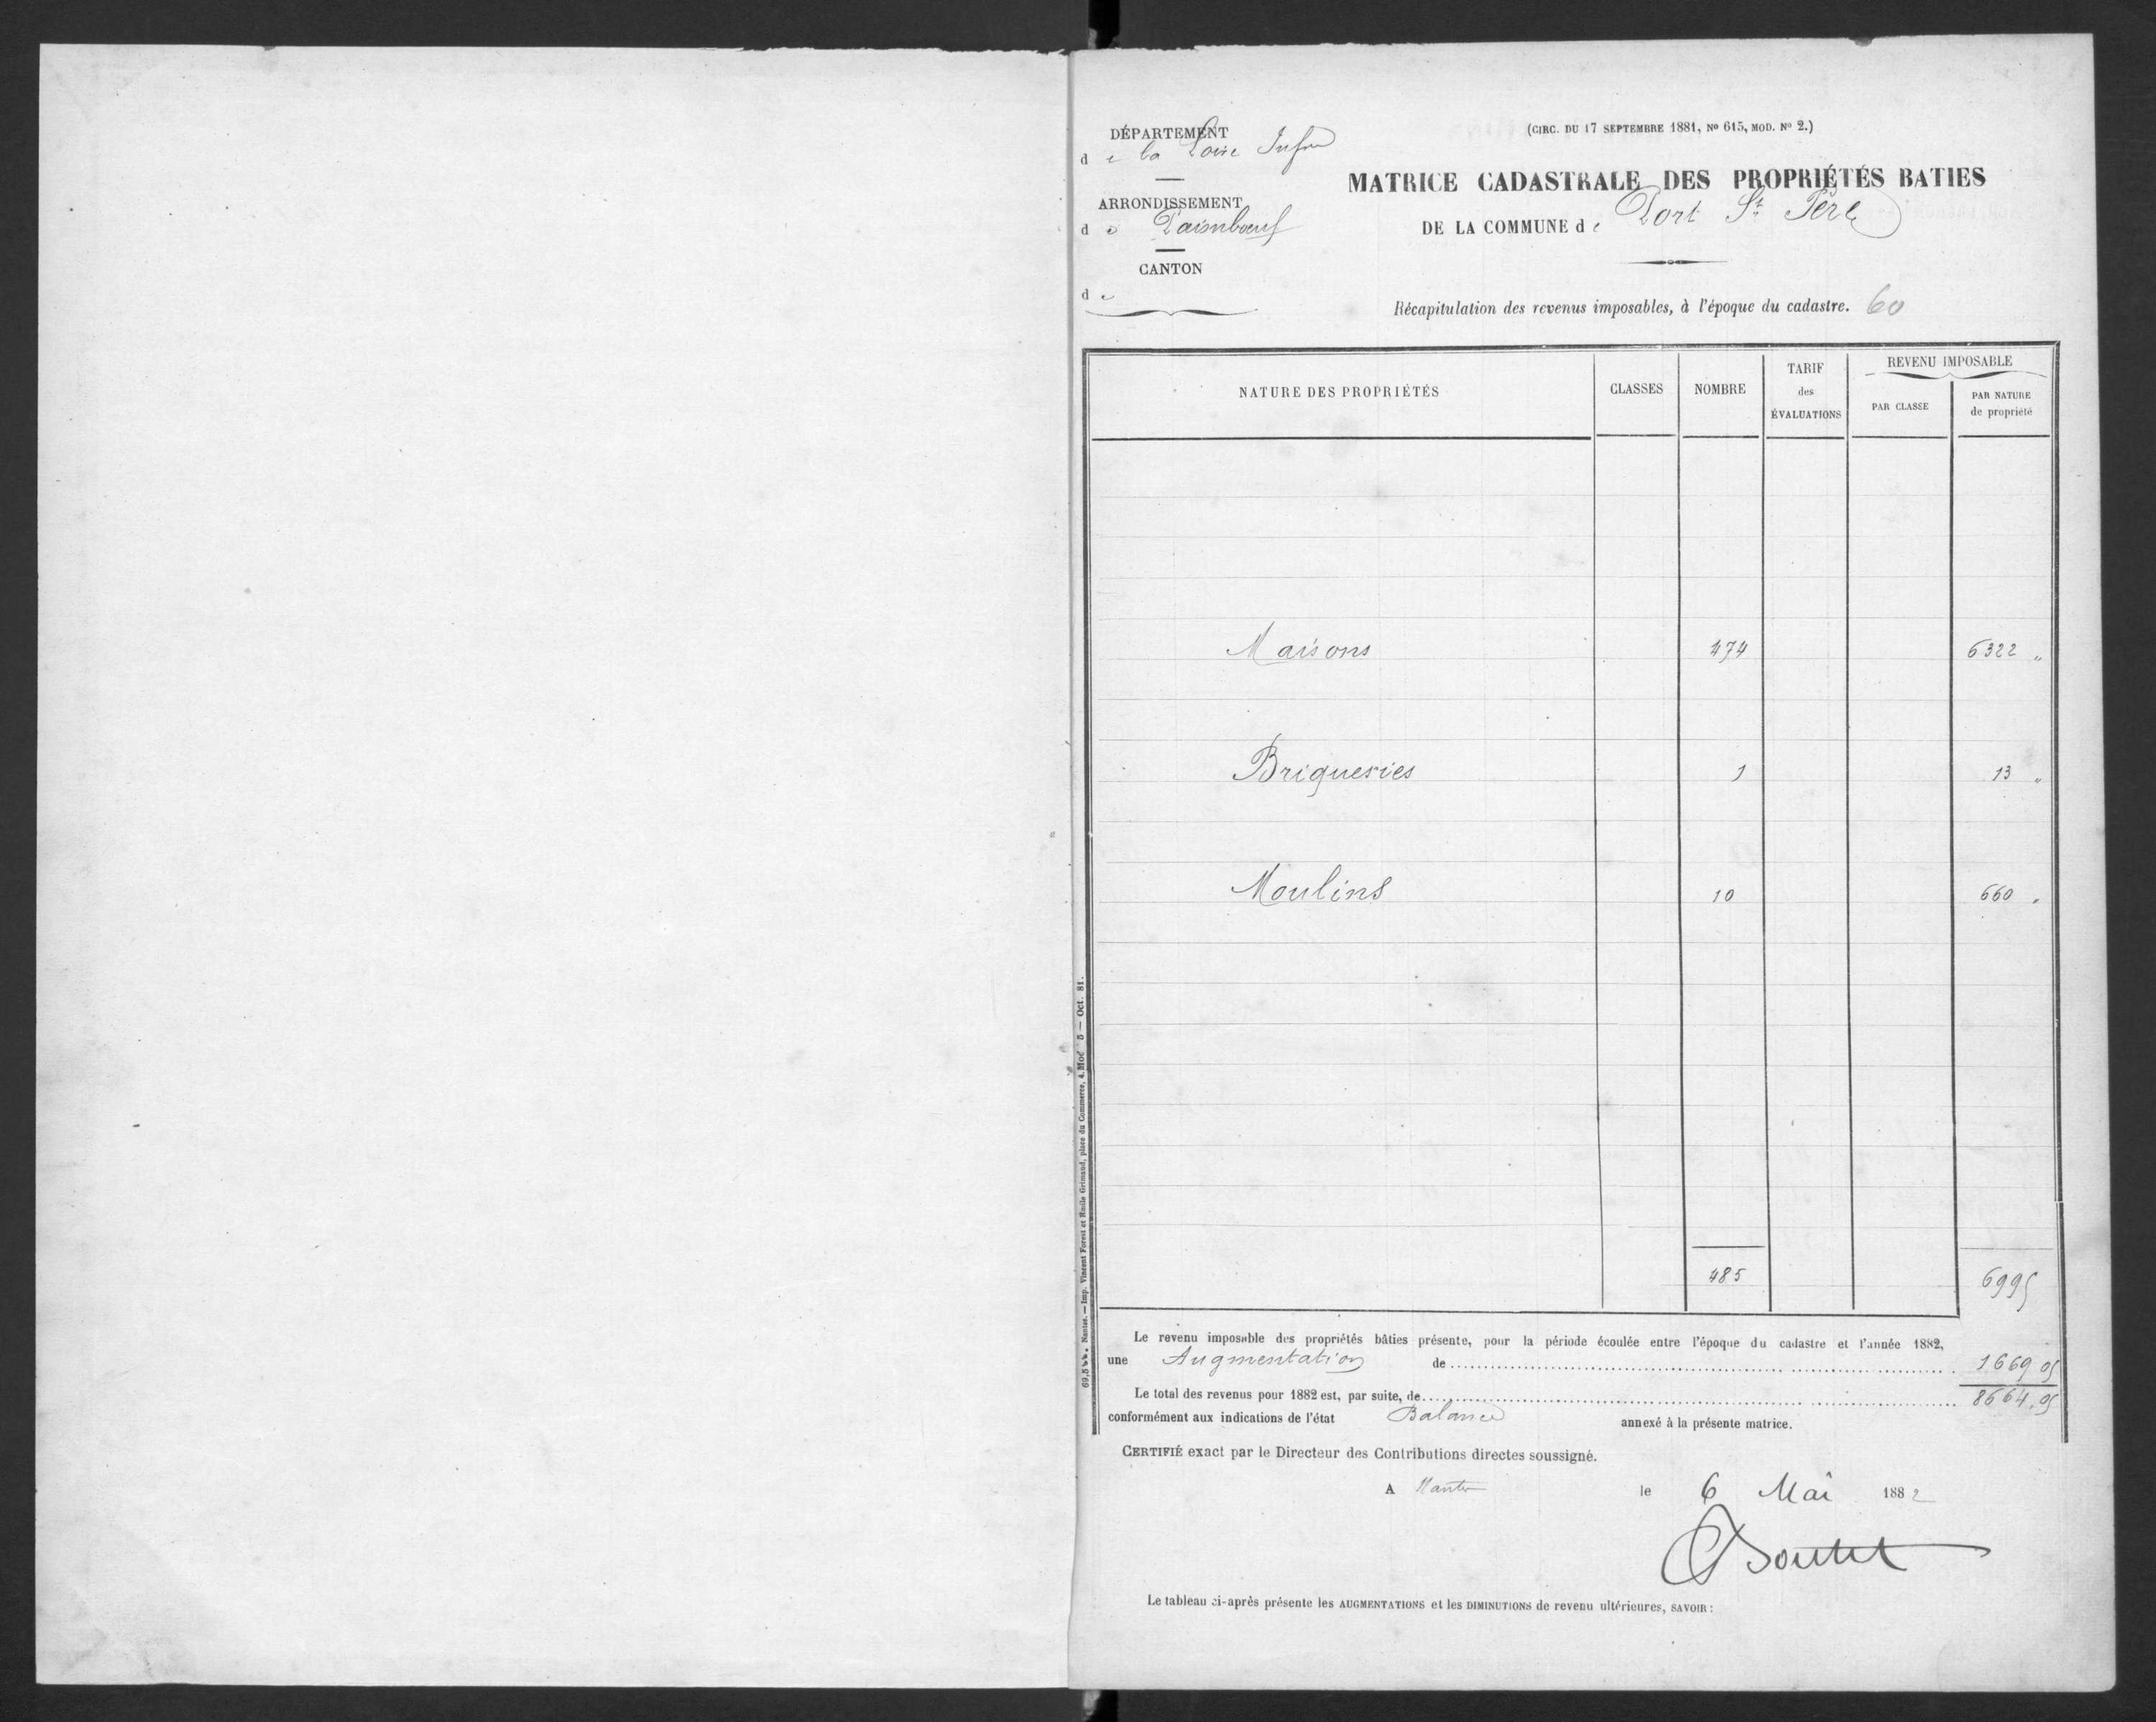 (CIRC. DU 17 SEPTEMBRE 1881, No 615, MOD. No 2.)
DÉPARTEMENT
de la Loire Infre
ARRONDISSEMENT
de Paimbœuf
CANTON
de
MATRICE CADASTRALE DES PROPRIÉTÉS BATIES
DE LA COMMUNE de Port St Père
Récapitulation des revenus imposables, à l'époque du cadastre. 60
NATURE DES PROPRIÉTÉS CLASSES NOMBRE TARIF des ÉVALUATIONS REVENU IMPOSABLE
PAR CLASSE PAR NATURE de propriété
Maisons 474 6322 "
Briqueries 1 13 "
Moulins 10 660 "
485 6995
Le revenu imposable des propriétés bâties présente, pour la période écoulée entre l'époque du cadastre et l'année 1882,
une Augmentation de 1669 05
Le total des revenus pour 1882 est, par suite, de 8664.05
conformément aux indications de l'état Balance annexé à la présente matrice.
CERTIFIÉ exact par le Directeur des Contributions directes soussigné.
A Nantes le 6 Mai 1882
Le tableau ci-après présente les AUGMENTATIONS et les DIMINUTIONS de revenu ultérieures, SAVOIR :
Nantes. — Imp. Vincent Forest et Emile Grimaud, place du Commerce, 4. Mod 5 — Oct. 81.